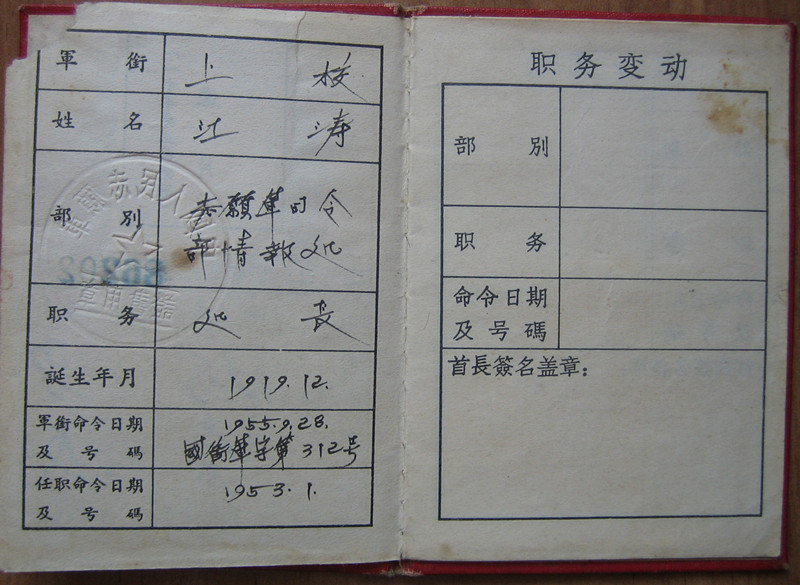 軍銜 上校
姓名 江涛
部別 志願軍司令
部情報处
职务 处長
誕生年月 1919.12.
軍銜命令日期 1955.9.28.
及号碼 國銜軍字第312号
任职命令日期 1953.1.
及号碼
职务变动
部別
职务
命令日期
及号碼
首長簽名盖章：